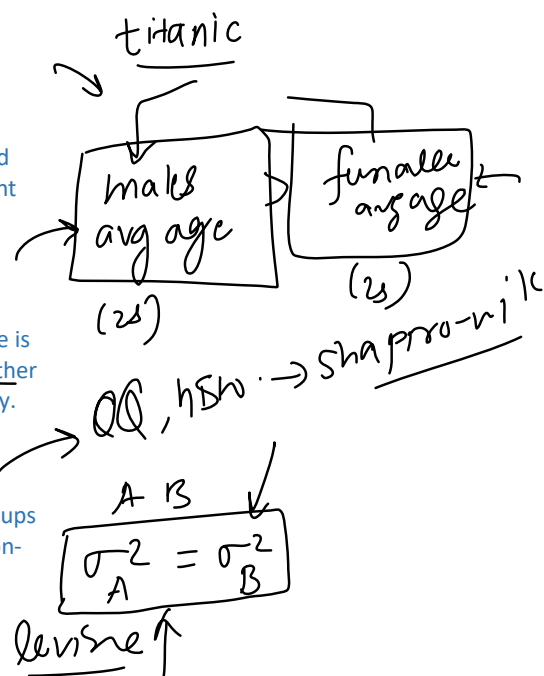 titanic
d
nt
males
avg age
funallee
avg age
(25)
(25)
e is
ther
y.
QQ, → shapro-wilk
A B
ups
on-
σ² = σ²
A B
levine